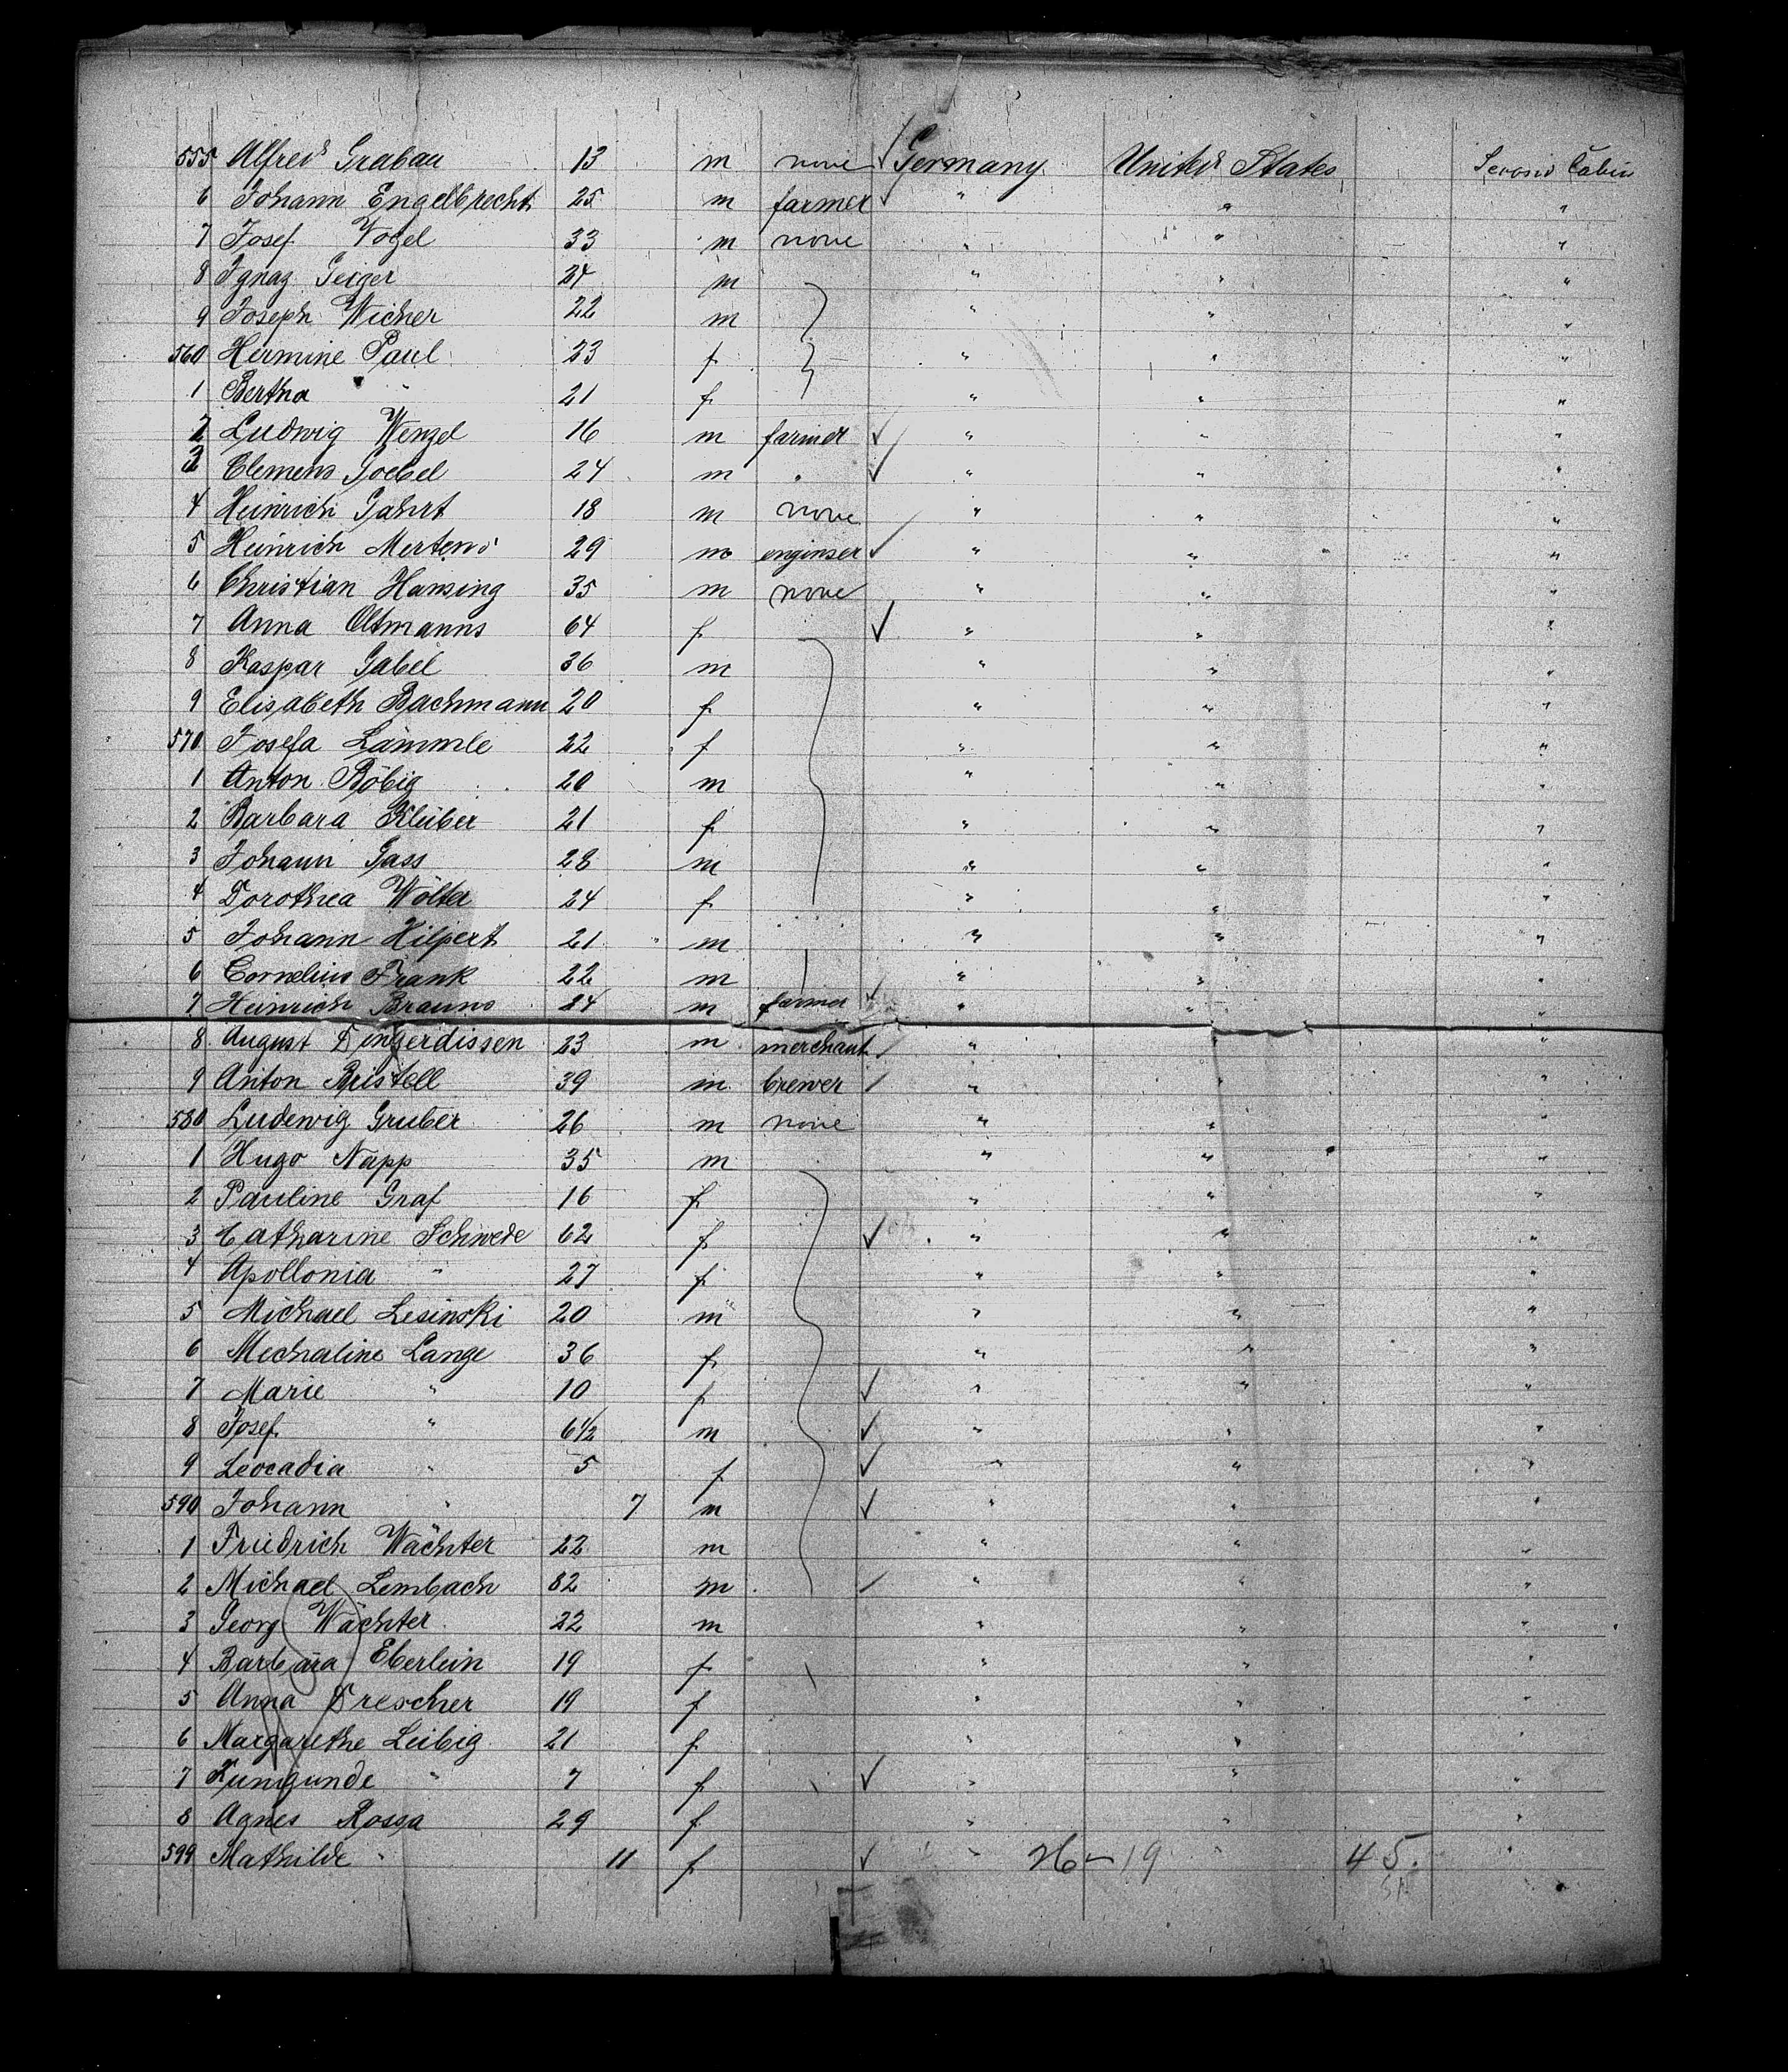 555 Alfred Grabau 13 m none Germany United States Second Cabin
6 Johann Engelbrecht 25 m farmer " " "
7 Josef Vogel 33 m none " " "
8 Ignaz Geiger 24 m " " "
9 Joseph Wicher 22 m " " "
560 Hermine Paul 23 f " " "
1 Bertha " 21 f " " "
2 Ludwig Wenzel 16 m farmer " " "
3 Clemens Goebel 24 m " " " "
4 Heinrich Gahrt 18 m none " " "
5 Heinrich Mertens 29 m engineer " " "
6 Christian Hansing 35 m none " " "
7 Anna Oltmanns 64 f " " "
8 Kaspar Gabel 36 m " " "
9 Elisabeth Bachmann 20 f " " "
570 Josefa Lämmle 22 f " " "
1 Anton Röbig 20 m " " "
2 Barbara Kleiber 21 f " " "
3 Johann Gass 28 m " " "
4 Dorothea Wölter 24 f " " "
5 Johann Hilpert 21 m " " "
6 Cornelius Frank 22 m " " "
7 Heinrich Brauns 24 m farmer " " "
8 August Dingerdissen 23 m merchant " " "
9 Anton Bristell 39 m brewer " " "
580 Ludewig Gruber 26 m none " " "
1 Hugo Napp 35 m " " "
2 Pauline Graf 16 f " " "
3 Catharine Schwede 62 f " " "
4 Apollonia " 27 f " " "
5 Michael Lesinski 20 m " " "
6 Michaline Lange 36 f " " "
7 Marie " 10 f " " "
8 Josef " 6½ m " " "
9 Leocadia " 5 f " " "
590 Johann " 7 m " " "
1 Friedrich Wächter 22 m " " "
2 Michael Lembach 82 m " " "
3 Georg Wächter 22 m " " "
4 Barbara Eberlein 19 f " " "
5 Anna Drescher 19 f " " "
6 Margarethe Leibig 21 f " " "
7 Kunigunde " 7 f " " "
8 Agnes Rossa 29 f " " "
599 Mathilde " 11 f " 26-19 " 45. "